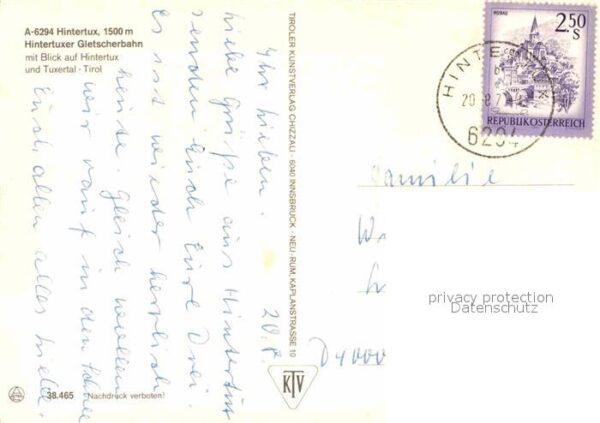 A-6294 Hintertux, 1500 m
Hintertuxer Gletscherbahn
mit Blick auf Hintertux
und Tuxertal - Tirol
Ihr Lieben. 20.8.
Liebe Grüße aus Hintertux
senden Euch Eure Drei.
Es ist wieder herrlich
heute. Gleich wollen
wir rauf in den Schnee
Euch allen alles Liebe.
38.465 Nachdruck verboten!
TIROLER KUNSTVERLAG CHIZZALI - 6040 INNSBRUCK - NEU-RUM, KAPLANSTRASSE 10
KTV
MURAU
2.50 S
REPUBLIK ÖSTERREICH
HINTE
20.-8.7
6294
Familie
W
D 4000
privacy protection
Datenschutz